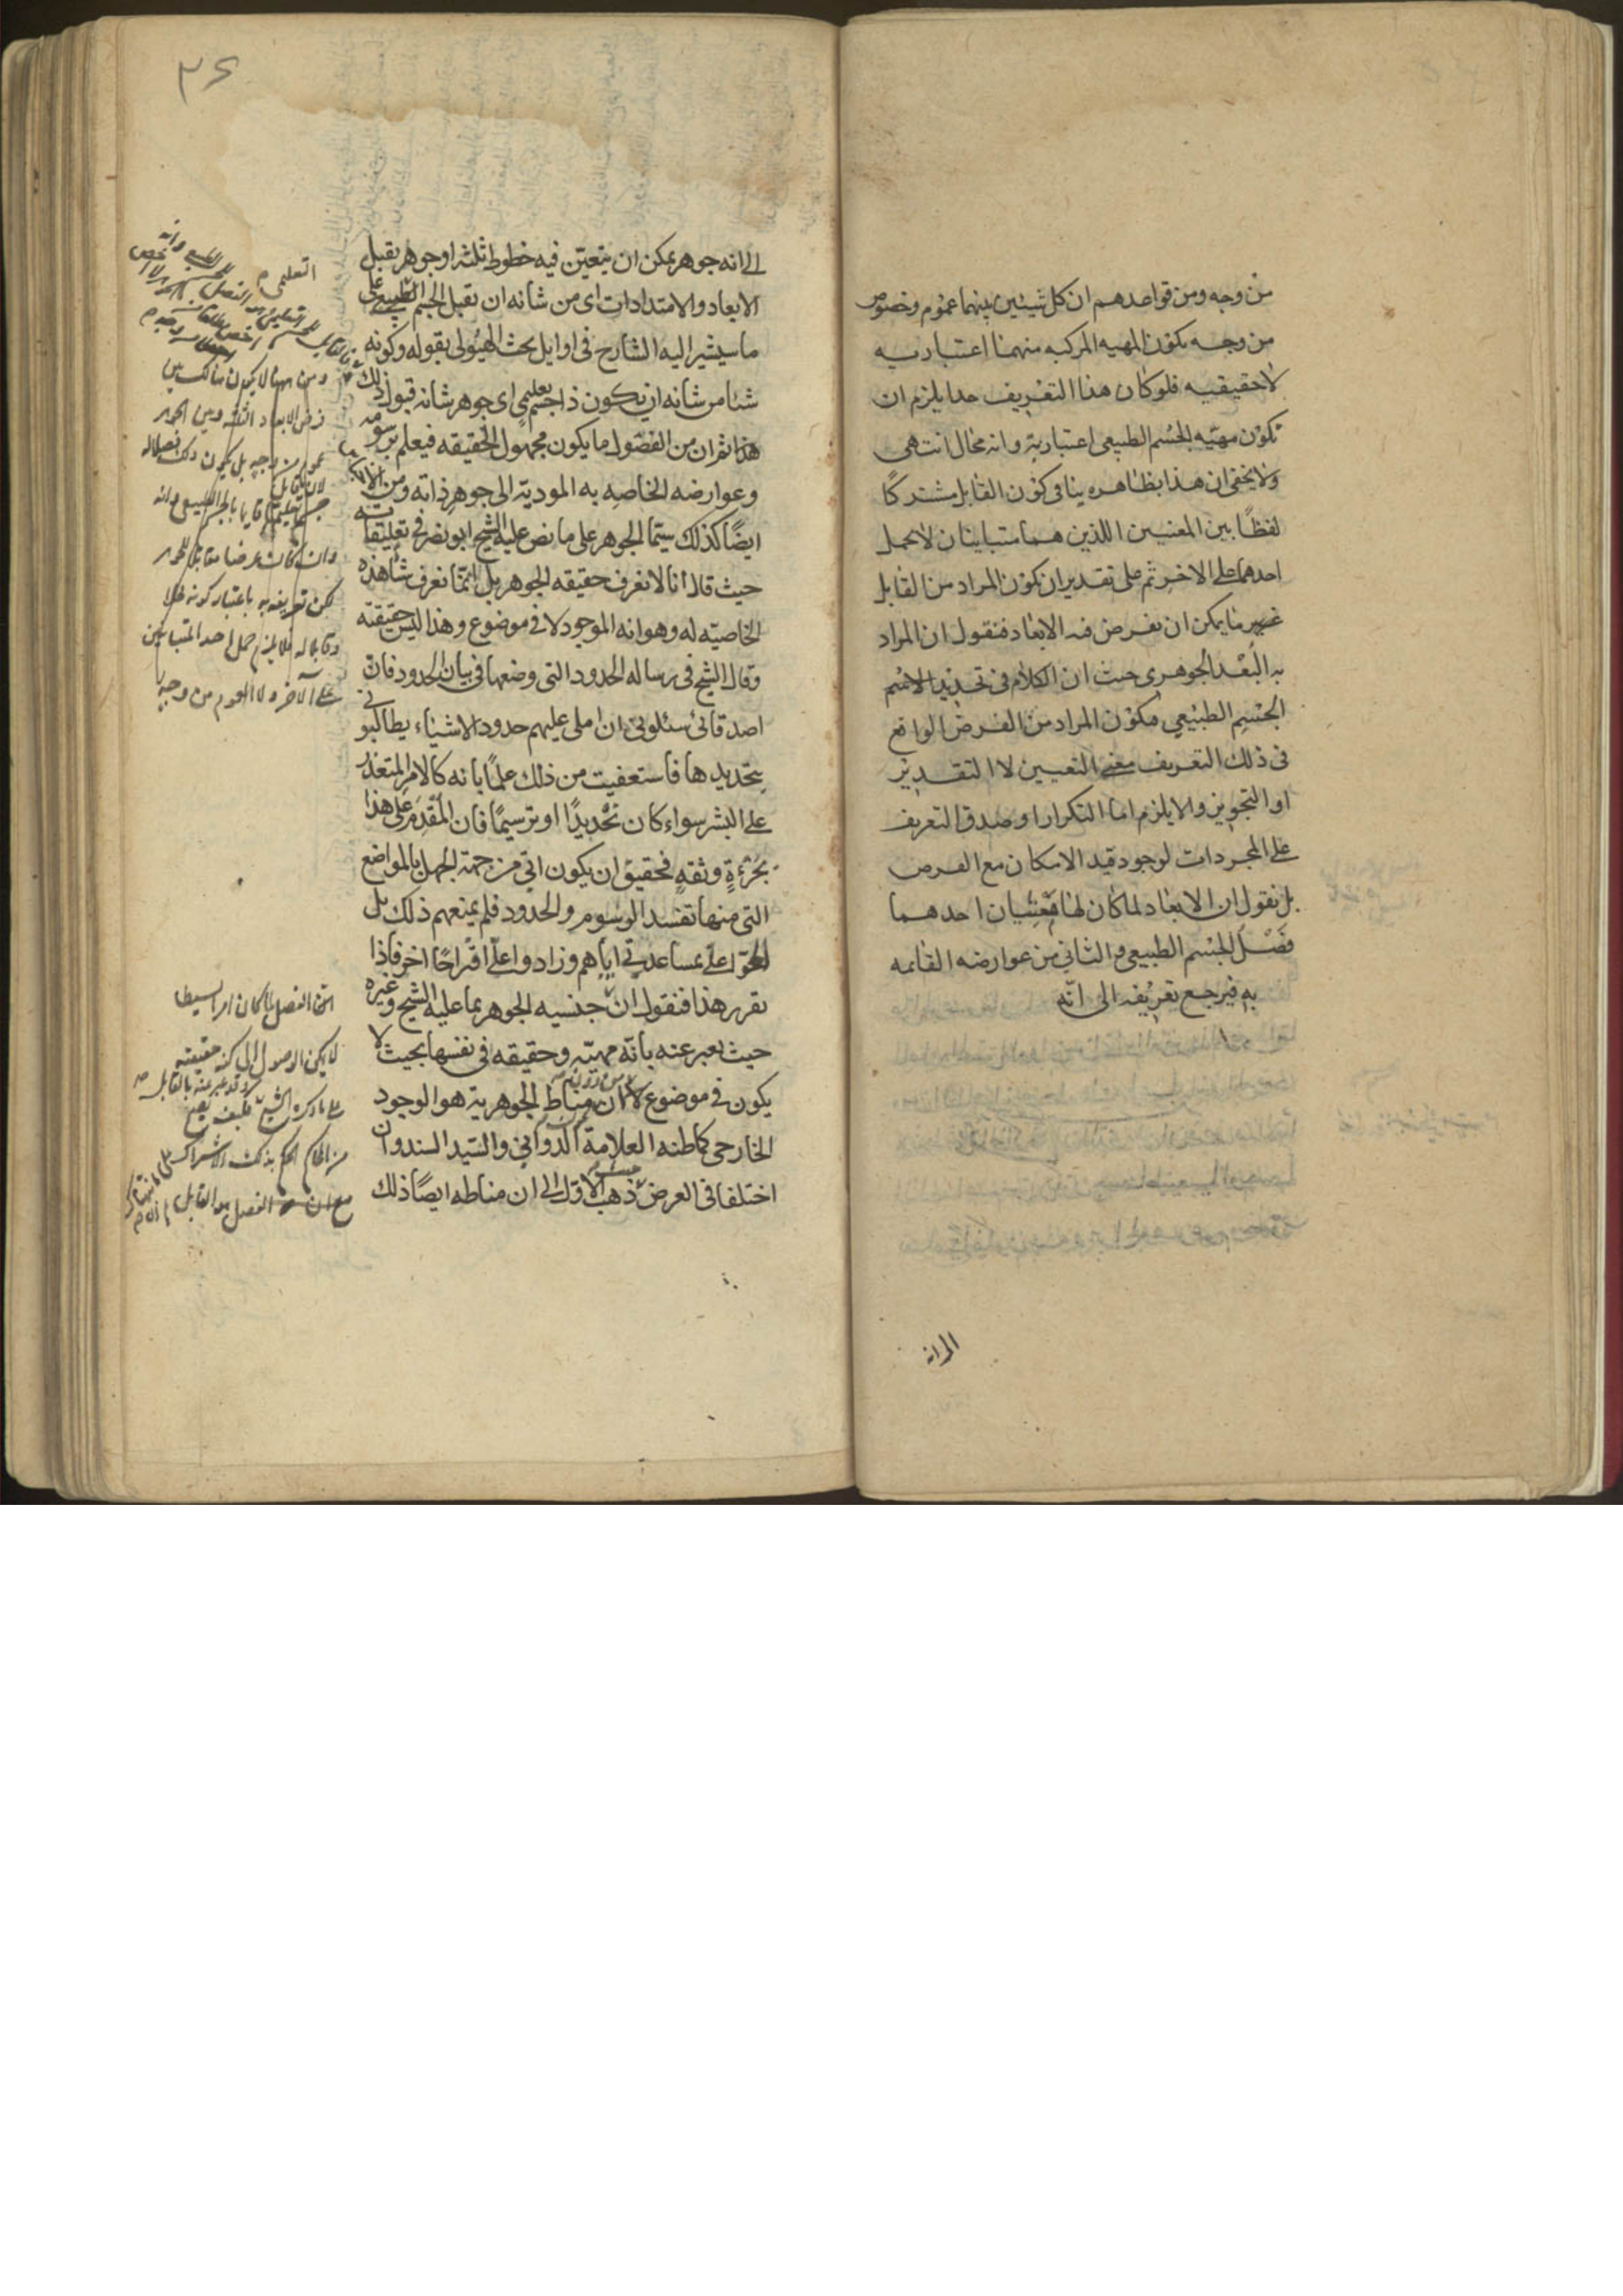 من وجه ومن قواعدهم ان كل شيئين بينهما عموم وخصوص
من وجه تكون المهيه المركبه منهما اعتباريه
لا حقيقيه فلو كان هذا التعريف حدا يلزم ان
تكون مهيّه الجسم الطبيعى اعتبارية وانه محال انت هى
ولا يخفى ان هذا بظاهره ينافى كون القابل مشتركًا
لفظًا بين المعنيين اللذين هما متباينان لا يحمل
احدهما على الاخر ثم على تقدير ان يكون المراد من القابل
غير ما يمكن ان يفرض فيه الابعاد فنقول ان المراد
به البُعْد الجوهرى حيث ان الكلام فى تحديد
الجسم الطبيعى فيكون المراد من الفرض الواقع
فى ذلك التعريف معنى التعيين لا التقدير
او التجويز والا يلزم اما التكرار او صدق التعريف
على المجردات لوجود قيد الامكان مع الفرض
بل نقول ان الابعاد لما كان لها معنيان احدهما
فصل الجسم الطبيعى والثانى من عوارضه القائمه
به فيرجع تعريفه الى انّه
الى انه
٣٦
الى انه جوهر يمكن ان يتعيّن فيه خطوط ثلثه او جوهر يقبل
الابعاد والامتدادات اى من شانه ان يقبل الجسم الطبيعى على
ما سيشير اليه الشارح فى اوايل بحث الهيُولى بقوله وكونه
شئا من شانه ان يكون ذا جسم تعليمى اى جوهر شانه قبول ذلك
هذا ثم ان من الفصول ما يكون مجهول الحقيقه فيعلم برسومه
وعوارضه الخاصه به المودية الى جوهر ذاته ومن الاجناس
ايضًا كذلك سيّما الجوهر على ما نص عليه الشيخ ابو نصر فى تعليقاته
حيث قال انا لا نعرف حقيقه الجوهر بل انمّا نعرف شا هذه
الخاصيّه له وهو انه الموجود لا فى موضوع وهذا ليس حقيقته
وقال الشيخ فى رساله الحدود التى وضعها فى بيان الحدود فان
اصدقائى سئلونى ان املى عليهم حدود الاشياء يطالبونى
بتحديدها فاستعفيت من ذلك علمًا بانه كالامر المتعذر
على البشر سواء كان تحْديدًا او ترسيمًا فان المُقْدِم على هذا
بجرءةٍ وثقهٍ فحقيق ان يكون اتى من جهة الجهل بالمواضع
التى منها تفسد الرسوم والحدود فلم يمنعهم ذلك بل
الحّوا علىّ بمساعدتى اياهم وزادوا علىّ اقتراحًا اخر فاذا
تقرر هذا فنقول ان جنسيه الجوهر بما عليه الشيخ وغيره
حيث يعبر عنه بانّه مهيّه وحقيقه فى نفسها بحيث لا
يكون فى موضوع لا ان مناط الجوهرية هو الوجود
الخارجى كما ظنه العلامة الدوّانى والسّيد السند وان
اختلفا فى العرض ذهب الاول الى ان مناطه ايضًا ذلك
التعليمى
ومن ههنا لا يكون هنالك بين
فرض الابعاد الثلثه وبين الجوهر
عموم من وجه بل يكون ذلك فصلا له
وان كان عرضا مقابلا للجوهر
لكن تعريفه به باعتبار كونه فصلا
وقابلا له فلا يلزم حمل احد المتباينين
على الآخر ولا العموم من وجه
ان الفصل لما كان امرا بسيطا
لا يمكن الوصول الى كنه حقيقته
وقد عبر عنه بالقابل
على ما ذكره الشيخ فكيف يصح
من الحاكم الحكم بذلك الاشتراك
مع ان الفصل هو القابل